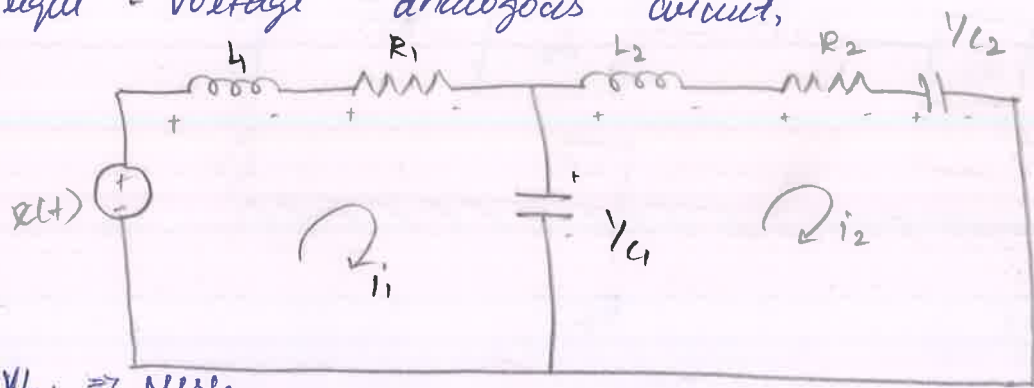 - Voltage analogous circuit,
L1 R1 L2 R2 1/C2
+ - + - + - + - + -
e(t) + - i1 + 1/C1 - i2